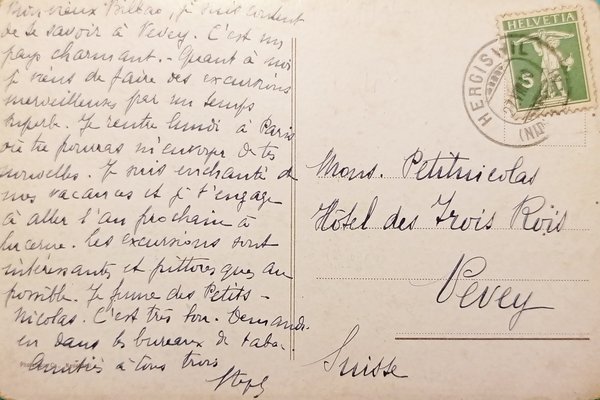 Mon vieux, je suis content
de te savoir à Vevey. C'est un
pays charmant.. Quant à moi
je viens de faire des excursions
merveilleuses par un temps
superbe. Je rentre lundi à Paris
où tu pourras m'envoyer de tes
nouvelles. Je suis enchanté de
mes vacances et je t'engage
à aller l'an prochain à
Lucerne. Les excursions sont
intéressantes et pittoresques au
possible. Je fume des Petits-
Nicolas. C'est très bon. Demandes
en dans les bureaux de tabac
Amitiés à tous trois
Steph
HELVETIA
5
HERGISWIL
Mons. Petitnicolas
Hôtel des Trois Rois
Vevey
Suisse